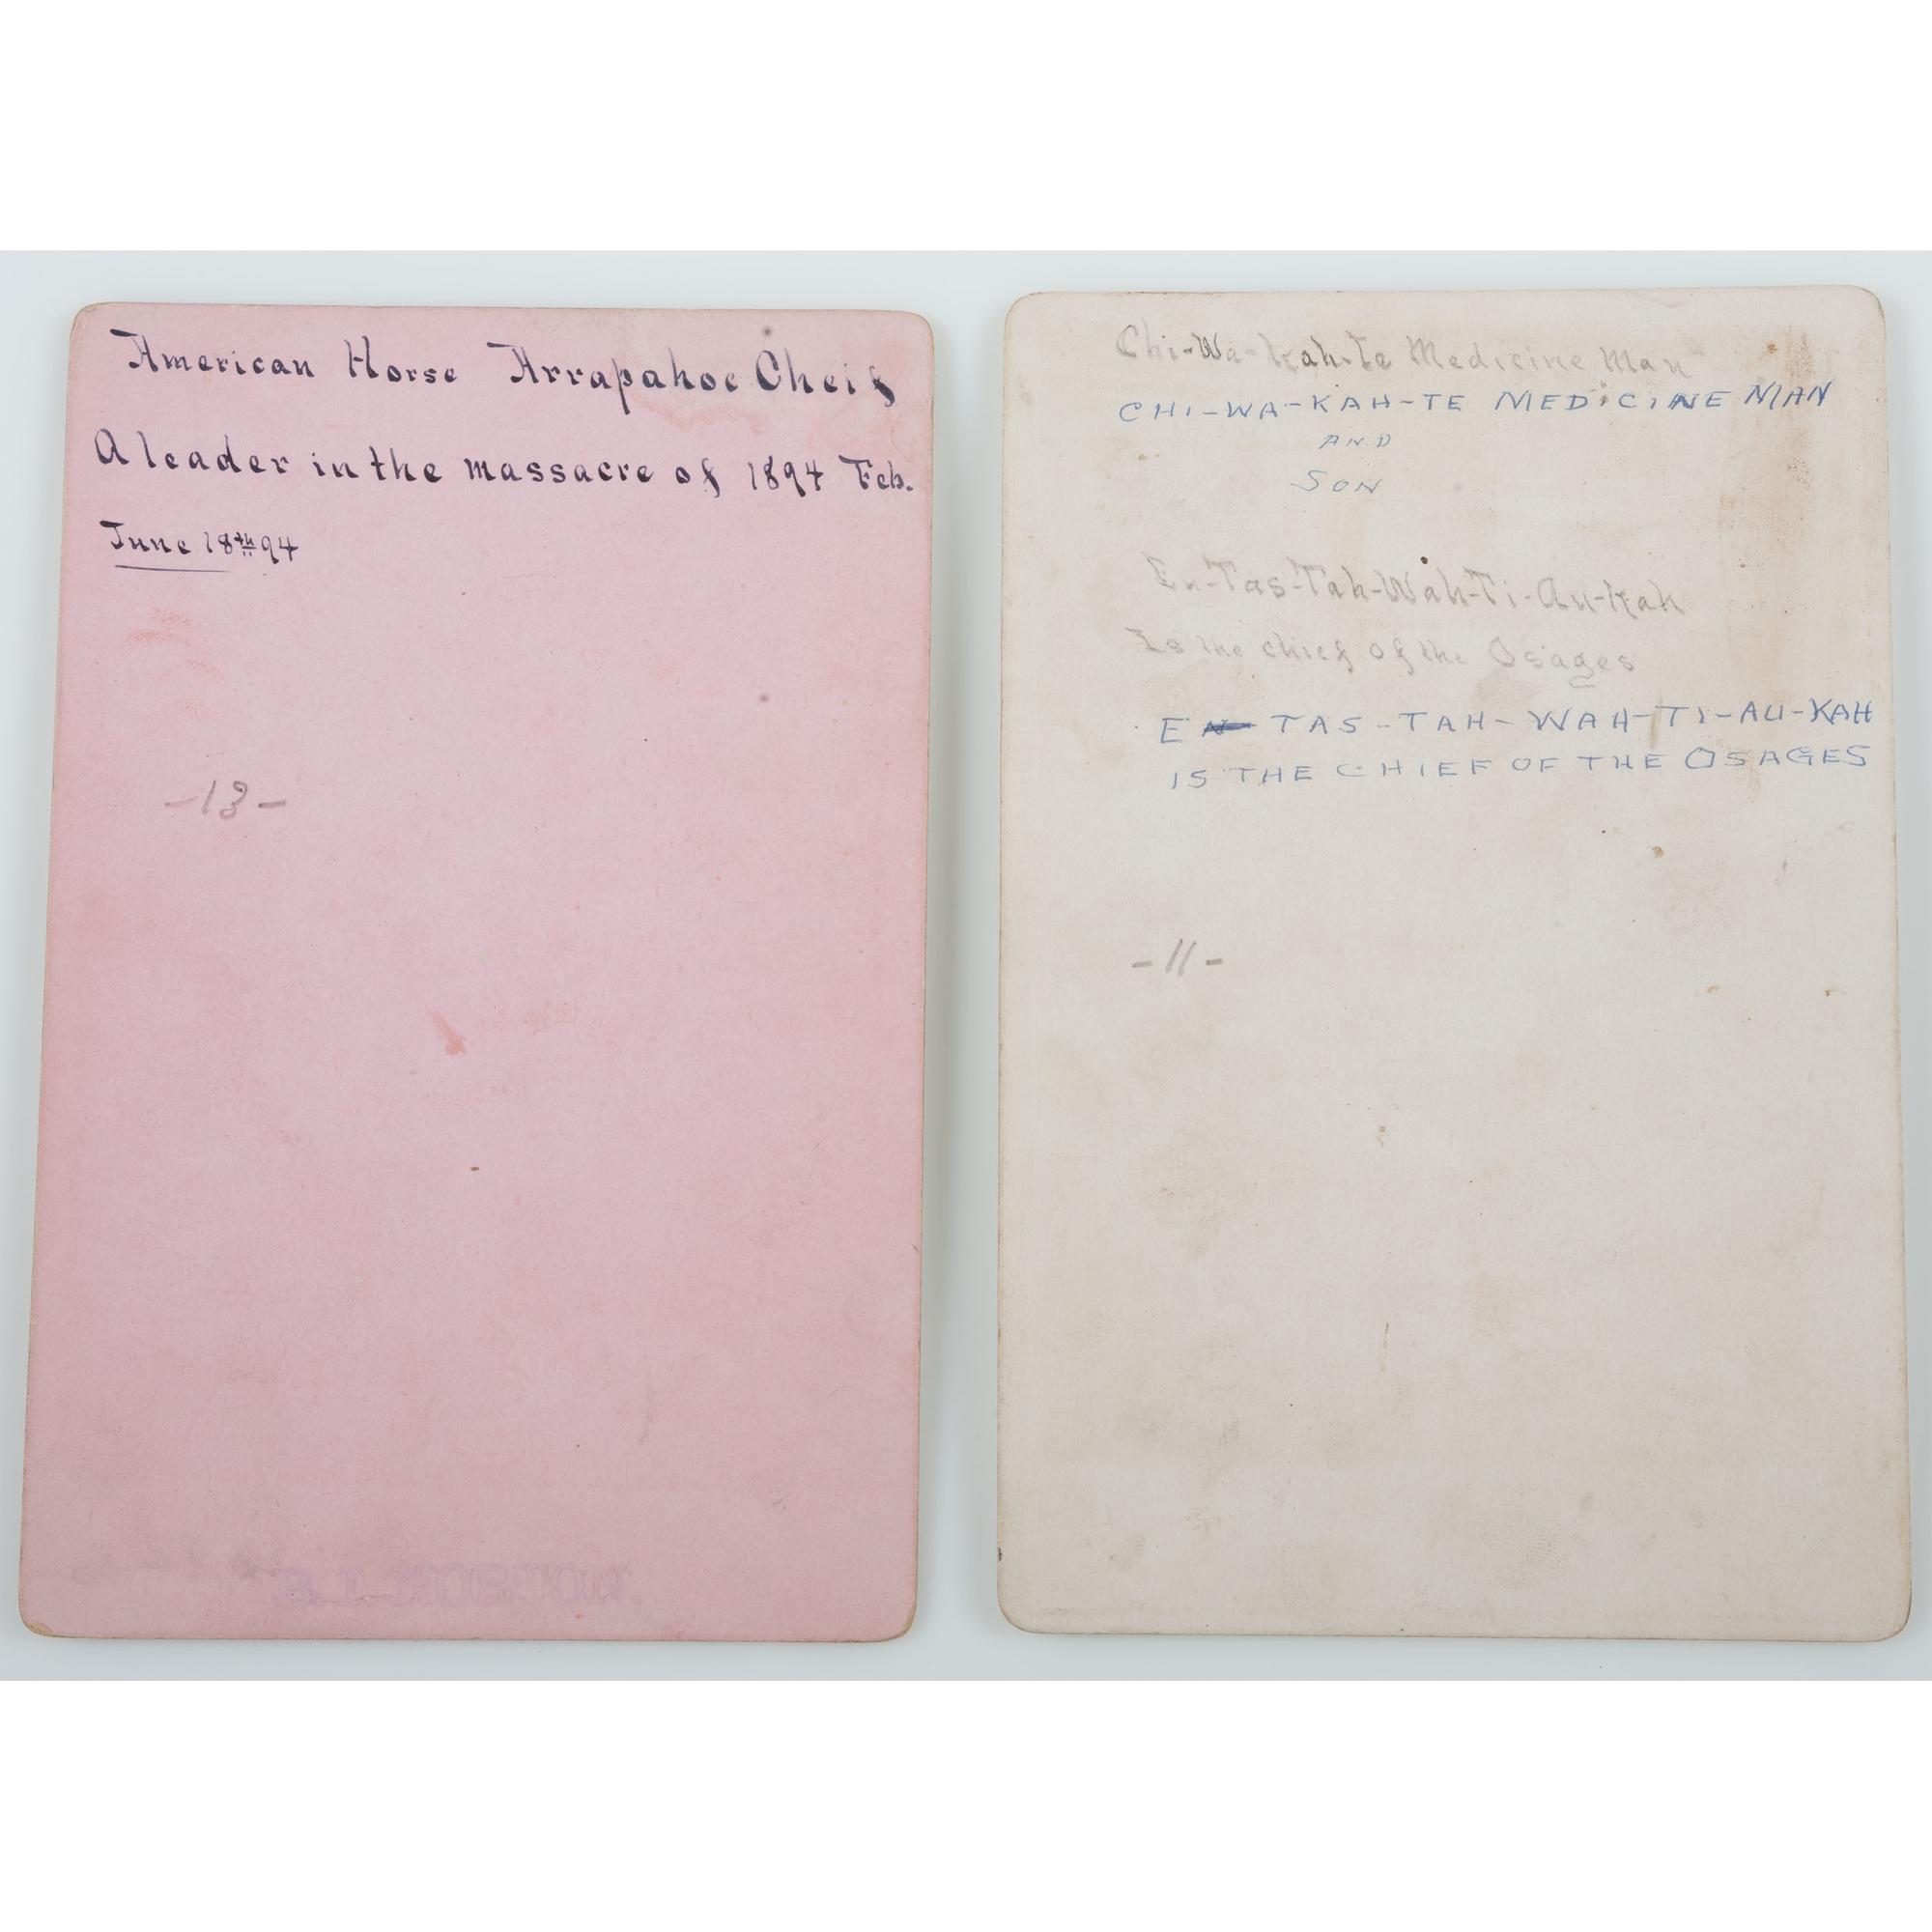 American Horse Arrapahoe Cheif
A leader in the massacre of 1894 Feb.
June 18th 94
-13-
Chi-Wa-kah-te Medicine Man
CHI-WA-KAH-TE MEDICINE MAN
AND
SON
En-Tas-Tah-Wah-Ti-Au-Kah
Is the chief of the Osages
E TAS-TAH-WAH-TI-AU-KAH
IS THE CHIEF OF THE OSAGES
-11-